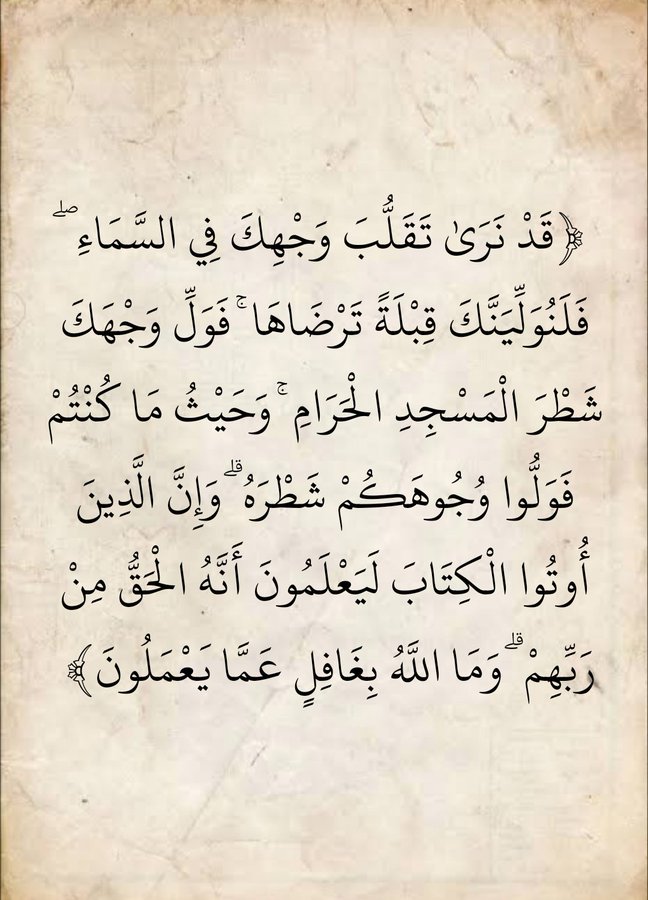 ﴿قَدْ نَرَىٰ تَقَلُّبَ وَجْهِكَ فِي السَّمَاءِ ۖ
فَلَنُوَلِّيَنَّكَ قِبْلَةً تَرْضَاهَا ۚ فَوَلِّ وَجْهَكَ
شَطْرَ الْمَسْجِدِ الْحَرَامِ ۚ وَحَيْثُ مَا كُنْتُمْ
فَوَلُّوا وُجُوهَكُمْ شَطْرَهُ ۗ وَإِنَّ الَّذِينَ
أُوتُوا الْكِتَابَ لَيَعْلَمُونَ أَنَّهُ الْحَقُّ مِنْ
رَبِّهِمْ ۗ وَمَا اللَّهُ بِغَافِلٍ عَمَّا يَعْمَلُونَ﴾